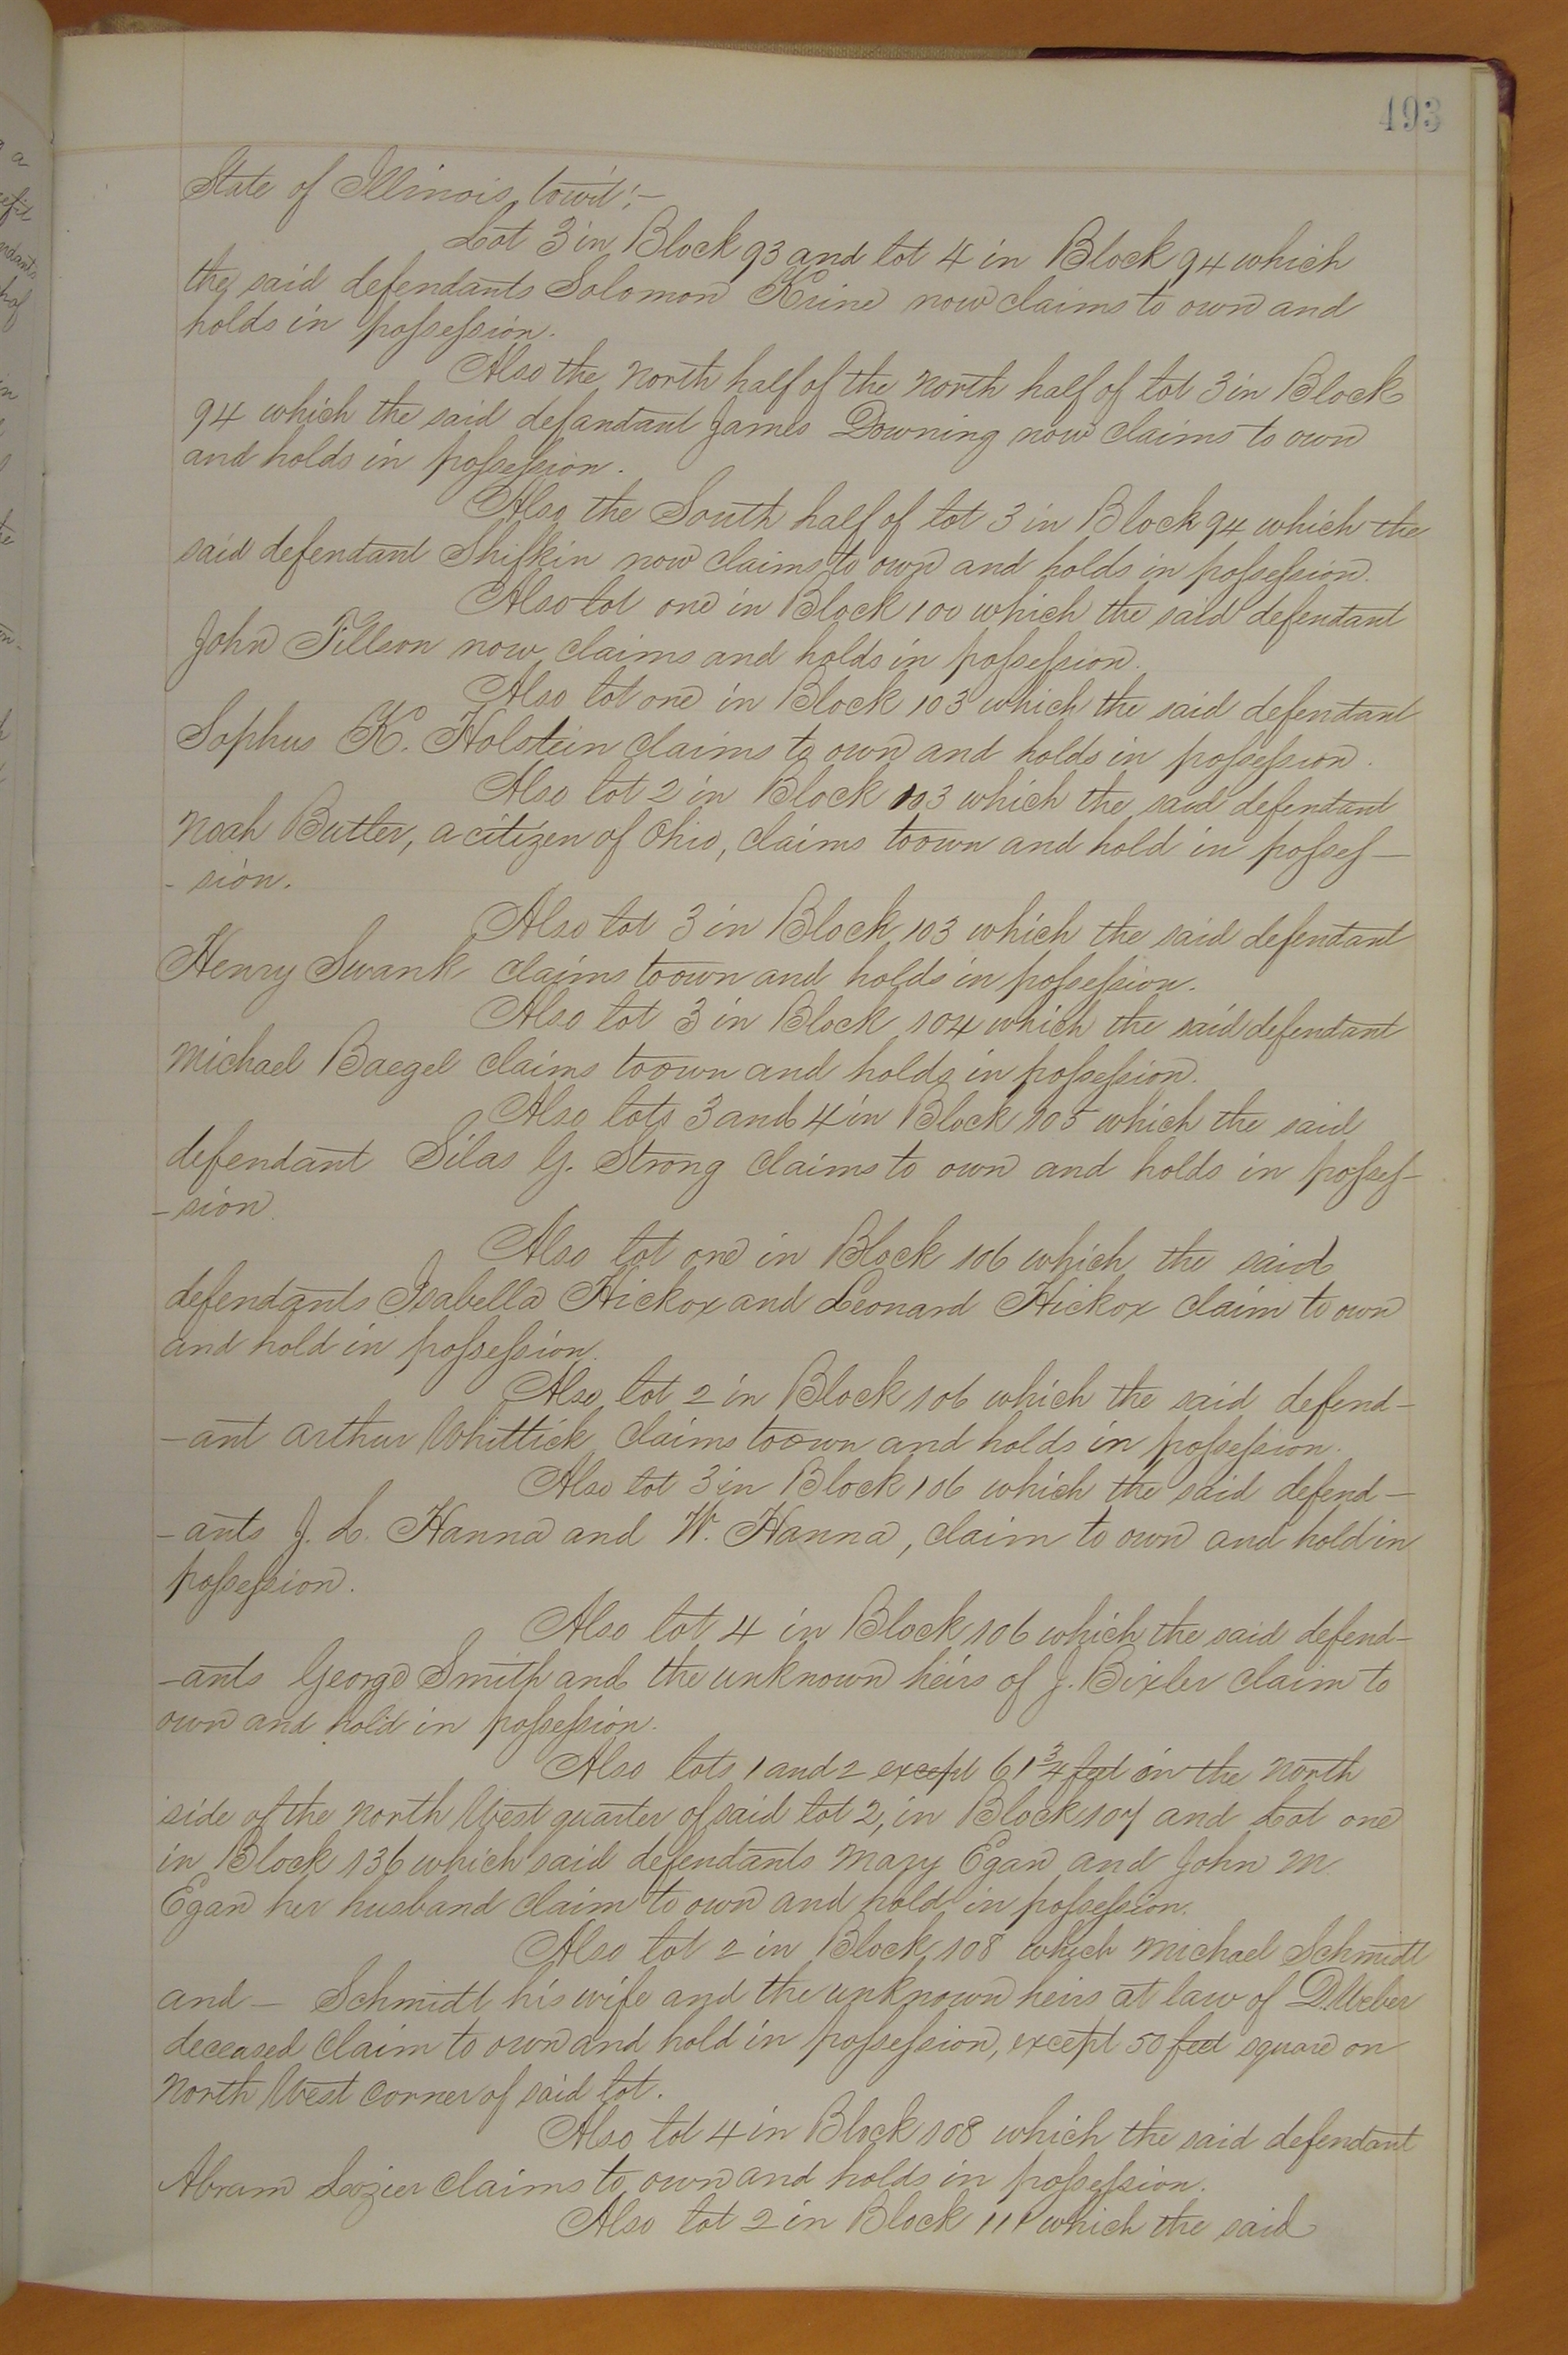 493
State of Illinois, towit:—
Lot 3 in Block 93 and lot 4 in Block 94 which
the said defendants Solomon Krine now claims to own and
holds in possession.
Also the north half of the north half of lot 3 in Block
94 which the said defandant James Downing now claims to own
and holds in possession.
Also the South half of lot 3 in Block 94 which the
said defendant Shifkin now claims to own and holds in possession.
Also lot one in Block 100 which the said defendant
John Tillson now claims and holds in possession.
Also lot one in Block 103 which the said defendant
Sophus K. Holstein claims to own and holds in possession.
Also lot 2 in Block 103 which the said defendant
Noah Butler, a citizen of Ohio, claims to own and hold in posses—
- sion.
Also lot 3 in Block 103 which the said defendant
Henry Swank claims to own and holds in possession.
Also lot 3 in Block 104 which the said defendant
Michael Baegel claims to own and holds in possession.
Also lots 3 and 4 in Block 105 which the said
defendant Silas G. Strong claims to own and holds in posses-
- sion.
Also lot one in Block 106 which the said
defendants Isabella Hickox and Leonard Hickox claim to own
and hold in possession.
Also lot 2 in Block 106 which the said defend-
-ant Arthur Whittick claims to own and holds in possession.
Also lot 3 in Block 106 which the said defend—
- ants J. L. Hanna and W. Hanna, claim to own and hold in
possession.
Also lot 4 in Block 106 which the said defend-
-ants George Smith and the unknown heirs of J. Bixler claim to
own and hold in possession.
Also lots 1 and 2 except 61 3/4 feet on the North
side of the North West quarter of said lot 2, in Block 107 and Lot one
in Block 136 which said defendants Mary Egan and John M.
Egan her husband claim to own and hold in possession.
Also lot 2 in Block 108 which Michael Schmidt
and — Schmidt his wife and the unknown heirs at law of D. Weber
deceased claim to own and hold in possession, except 50 feet square on
North West corner of said lot.
Also lot 4 in Block 108 which the said defendant
Abram Lozier claims to own and holds in possession.
Also lot 2 in Block 111 which the said